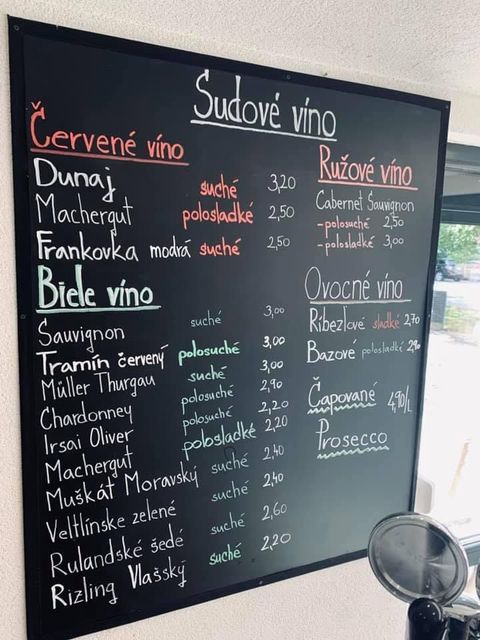 Sudové víno
Červené víno
Dunaj suché 3,20
Machergut polosladké 2,50
Frankovka modrá suché 2,50
Biele víno
Sauvignon suché 3,00
Tramín červený polosuché 3,00
Müller Thurgau suché 3,00
Chardonney polosuché 2,90
Irsai Oliver polosuché 2,20
Machergut polosladké 2,20
Muškát Moravský suché 2,40
Veltlínske zelené suché 2,40
Rulandské šedé suché 2,60
Rizling Vlašský suché 2,20
Ružové víno
Cabernet Sauvignon
- polosuché 2,50
- polosladké 3,00
Ovocné víno
Ribezľové sladké 2,70
Bazové polosladké 2,90
Čapované 4,90/L
Prosecco